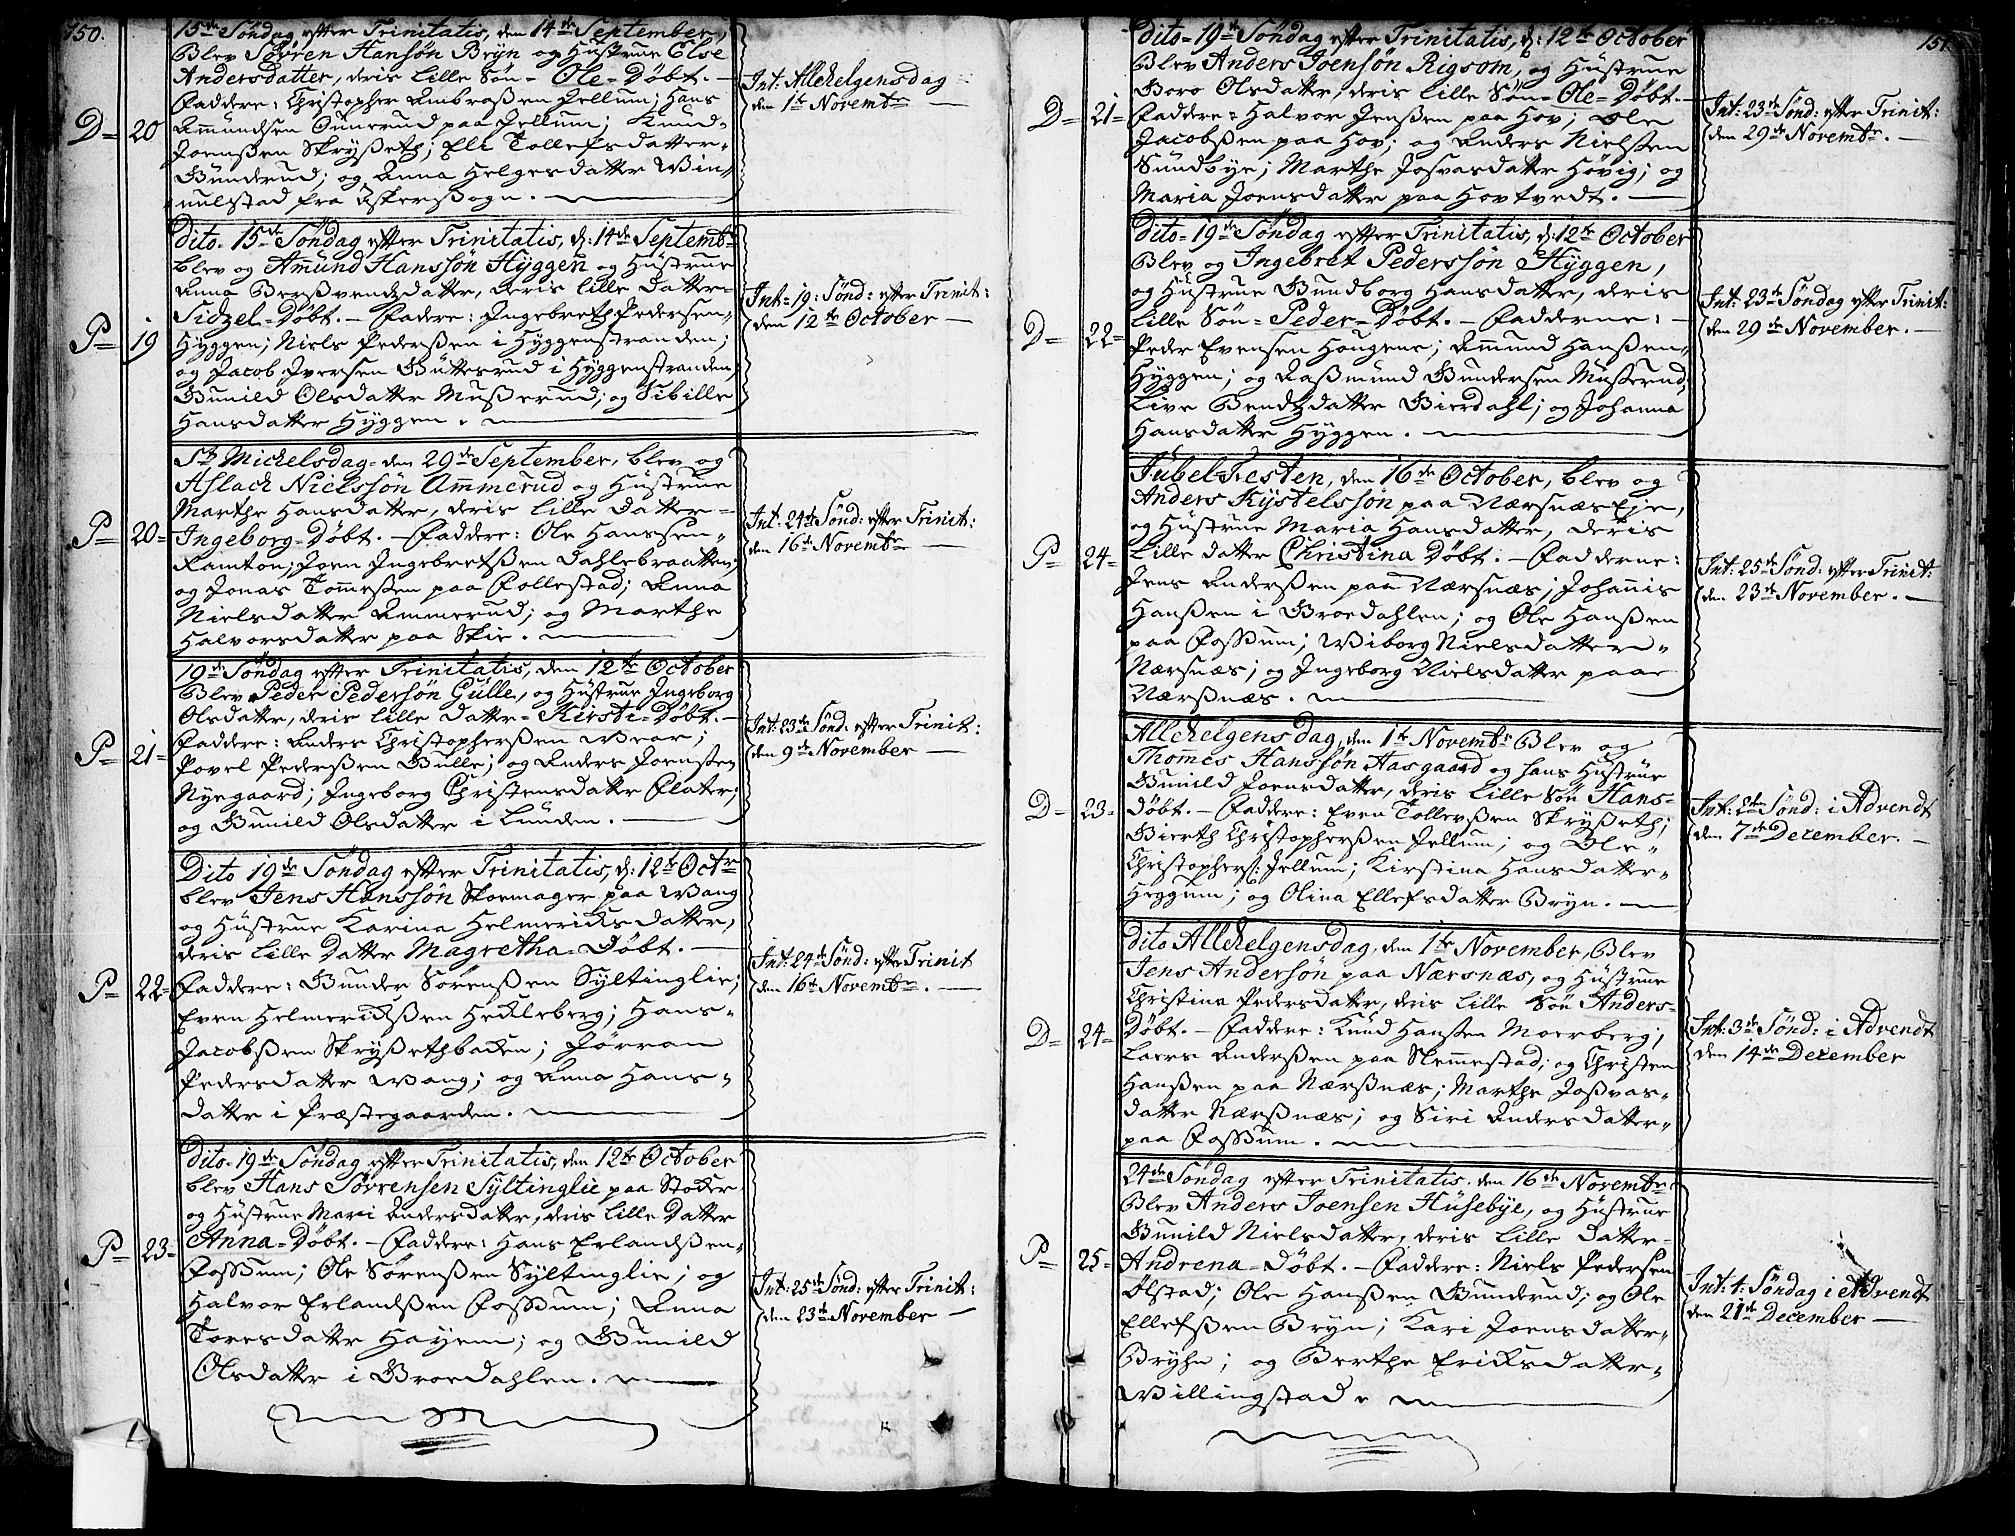 150.
15de Söndag efter Trinitatis, den 14de September,
Blev Sören Hansön Bryn og Hustrue Else
Andersdatter, deris Lille Sön = Ole = Döbt. —
Faddere: Christopher Ambrosßen Jellum; Hans
D= 20
Amundsen Gunerud paa Jellum; Knud
Joensßen Skrysßeth; Eli Tollefsdatter
Bünderud; og Anna Helgesdatter Win,
nulstad fra Askersßogn.
Int: Allehelgensdag
den 1te Novembr —
Dito- 15de Söndag efter Trinitatis, d: 14de Septembr
blev og Amünd Hanssön Hÿggen og Hüstrue
Anna Bersßvendsdatter, deris Lille Datter=
Sidzel=Döbt. — Fadere: Ingebreth Pedersen
P= 19
Hyggen; Niels Pedersßen i Hyggenstranden;
og Jacob Iversen Büttesrud i Hyggenstranden,
Gunild Olsdatter Musßerud; og Sibille
Hansdatter Hyggen.
Int= 19: Sönd: efter Trinit:
den 12te October —
St Michelsdag= den 29de September, blev og
Aslach Nielssön Ammerud og Hüstrue
Marthe Hansdatter, deris Lille Datter=
P= 20=
Ingeborg=Döbt. — Faddere: Ole Hanssen
Ramton; Joen Ingebretsßen Dahlebraatten;
og Jonas Tommesßen paa Follestad; Anna
Nielsdatter Ammerud; og Marthe
Halvorsdatter paa Skie.
Int: 24de Sönd: efter Trinit:
den 16de Novembr —
19de Söndag efter Trinitatis, den 12te October
Blev Peder Pedersön Gülle, og Hüstrue Ingeborg
Olsdatter, deris Lille Datter= Kirsti=Döbt. —
Faddere: Anders Christophersßen Wear;
P= 21=
Povel Pedersßen Gulle; og Anders Joensßen
Nyegaard; Ingeborg Christensdatter Flater;
og Gunild Olsdatter i Lunden.
Int: 23de Sönd: efter Trinit:
den 9de November —
Dito 19de Söndag efter Trinitatis, d: 12te Octr
blev Jens Hanssön Skoemager paa Wang
og Hüstrue Karina Helmericksdatter,
deris Lille Datter Magretha=Döbt. —
P= 22=
Faddere: Gunder Sörensßen Syltinglie;
Even Helmericksßen Heckleberg; Hans
Jacobsßen Skrysßethbacken; Jörran
Pedersdatter Wang; og Anna Hans
datter i Præstegaarden.
Int: 24de Sönd: efter Trinit
den 16de Novembr. —
Dito- 19de Söndag efter Trinitatis, den 12te October
blev Hans Sörrensen Syltinglie paa Stocker
og Hüstrue Mari Andersdatter, deris Lille Datter
P= 23=
Anna=Döbt. — Faddere: Hans Erlandsßen
Fosßum; Ole Sörensßen Syltinglie; og
Halvor Erlandsßen Fosßum; Anna
Toresdatter Hayem; og Gunild
Olsdatter i Broedahlen.
Int: 25de Sönd: efter Trinit:
den 23de November —
151.
Dito= 19de Söndag efter Trinitatis, d: 12te October
Blev Anders Joensön Rigsom, og Hüstrue
Boro Olsdatter, deris Lille Sön= Ole=Döbt.
D= 21=
Faddere= Halvor Jensßen paa Hov; Ole
Jacobsßen paa Hov; og Anders Nielsßen
Sundbye; Marthe Josvasdatter Hövig; og
Maria Joensdatter paa Hovtvedt. —
Int: 23de Sönd: efter Trinit:
den 29de Novembr. —
Dito= 19de Söndag efter Trinitatis, d: 12te October
Blev og Ingebret Pederssön Hÿggen,
og Hüstrue Gundborg Hansdatter, deris
D= 22=
Lille Sön= Peder=Döbt. — Fadderne: —
Peder Evensen Hougene; Amund Hansßen
Hyggen; og Rasßmund Gundersen Musßerud;
Live Bendtzdatter Bierdahl; og Johanna
Hansdatter Hyggen.
Int: 23de Söndag efter Trinit:
den 29de November. —
Jübel Festen, den 16de October, blev og
Anders Kÿstelssön paa Nærsnæs Eje,
og Hüstrue Maria Hansdatter, deris
P= 24=
Lille datter Christina Döbt. — Fadderne:
Jens Andersßen paa Nærsnæs; Johannis
Hansßen i Broedahlen; og Ole Hansßen
paa Fosßum; Wiborg Nielsdatter
Nærsnæs; og Ingeborg Nielsdatter paa
Nærsßnæs.
Int: 25de Sönd: efter Trinit:
den 23de November. —
Allehelgensdag, den 1te Novembr Blev og
Thommes Hanssön Aasgaard og hans Hüstrue
Gunild Joensdatter, deris Lille Sön Hans=
D= 23=
Döbt. — Faddere: Even Tollevsßen Skrysßeth;
Gierth Christophersßen Jellum; og Ole
Christophers: Jellum; Kirstina Hansdatter
Heggum; og Olina Ellefsdatter Bryn. —
Int: 2den Sönd: i Advendt
den 7de December. —
Dito Allehelgensdag, den 1te November, Blev
Jens Andersön paa Nærsnæs, og Hüstrue
Christina Pedersdatter, deris Lille Sön Anders=
D= 24=
Döbt. — Faddere: Knud Hansßen Moerberg;
Laers Andersßen paa Slemmestad; og Christen
Hansßen paa Nærsßnæs; Marthe Josvas
datter Nærsßnæs; og Siri Andersdatter
paa Fosßum.
Int: 3de Sönd: i Advendt
den 14de December
24de Söndag efter Trinitatis, den 16de Novembr
Blev Anders Joensen Hüsebÿe, og Hüstrue
Gunild Nielsdatter, deris Lille Datter=
P= 25=
Andrena=Döbt. — Faddere: Niels Pedersen
Olstad; Ole Hansßen Gunderud; og Ole
Ellefsßen Bryn; Kari Joensdatter
Bryhn; og Berthe Ericksdatter
Willingstad.
Int: 4: Söndag i Advendt
den 21de December —